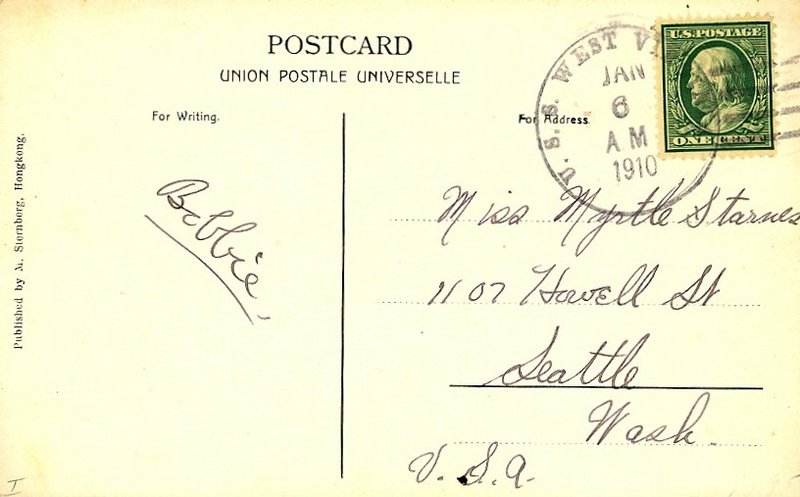 POSTCARD
UNION POSTALE UNIVERSELLE
For Writing.
For Address.
U.S.S. WEST VI
JAN
6
A M
1910
U.S.POSTAGE
ONE CENT
Published by M. Sternberg, Hongkong.
Bobbie.
Miss Myrtle Starnes
1107 Howell St
Seattle
Wash.
U.S.A.
I